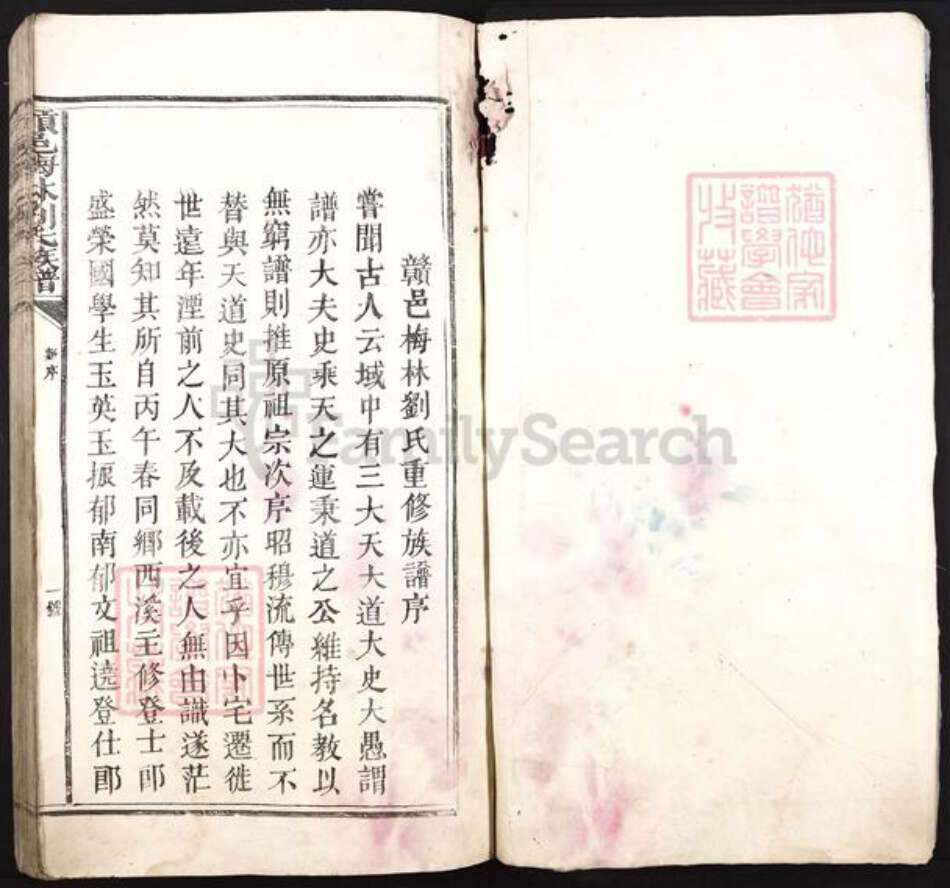 贛邑梅林劉氏重修族譜序
嘗聞古人云域中有三大天大道大史大愚謂
譜亦大夫史乘天之運秉道之公維持名教以
無窮譜則推原祖宗次序昭穆流傳世系而不
替與天道史同其大也不亦宜乎因卜宅遷徙
世遠年湮前之人不及載後之人無由識遂茫
然莫知其所自丙午春同鄉西溪主修登士郎
盛榮國學生玉英玉振郁南郁文祖遶登仕郎
贛邑梅林劉氏族譜
序
一
FamilySearch
譜學會
收藏